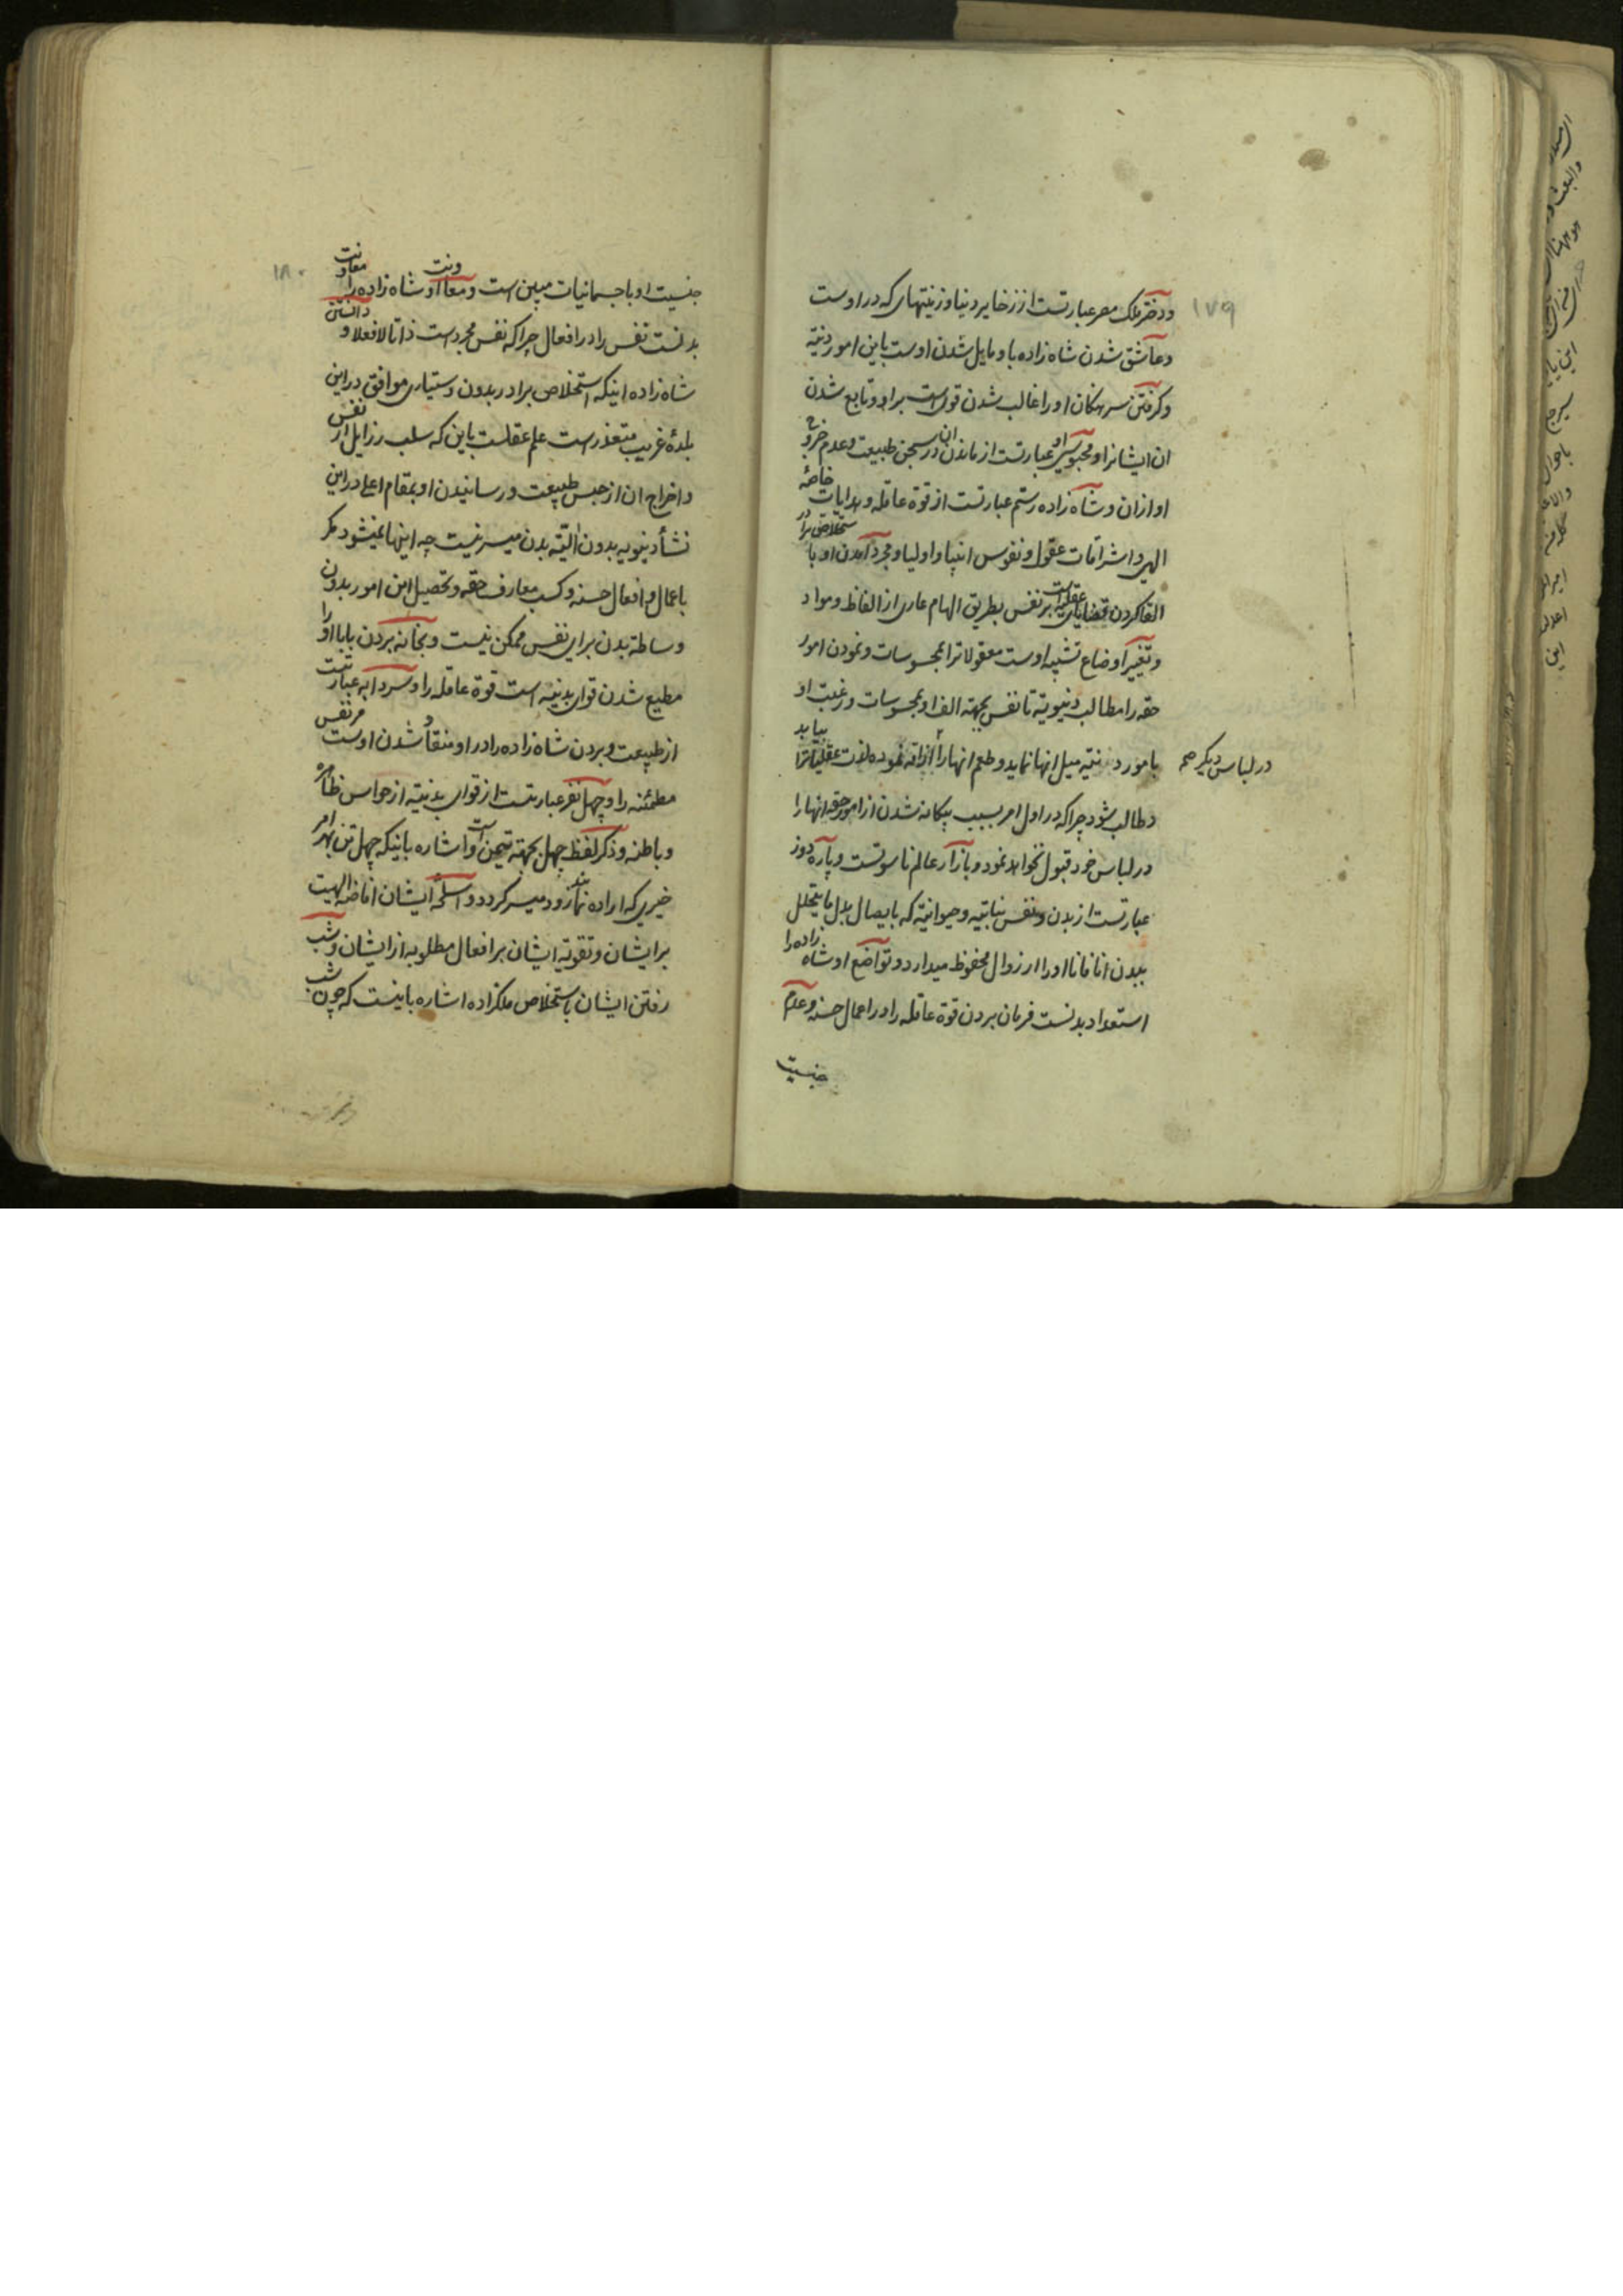 ۱۷۹
ودختر ملک مصر عبارتست از زخایر دنیا و زینتهای که در اوست
وعاشق شدن شاه زاده باو مایل شدن اوست باین امور دنیه
وکرفتن سرهنکان او را غالب شدن قوای است براو و تابع شدن
ان ایشانرا و محبوسی او عبارتست از ماندن ان در سجن طبیعت وعدم خروج
او ازان و شاه زاده رستم عبارتست از قوة عاقله و هدایات خاصه
الهی و اشراقات عقول و نفوس انبیا و اولیا و مجرد آمدن او با ستخلاص برادر
القا کردن قضایای عقلیه است بر نفس بطریق الهام عاری از الفاظ و مواد
وتغییر اوضاع تشبیه اوست معقولاترا بمحسوسات ونمودن امور
حقه را مطالب دنیویة تا نفس بجهته الف او بمحسوسات ورغبت او
بامور دنیه میل انها نماید وطعم انها را اذاقه نموده لذت عقلیاترا بیابد
در لباس دیکر صح
وطالب شود چرا که در اول امر بسبب بیکانه شدن از امور حقه انها را
در لباس خود قبول نخواهد نمود و بازار عالم ناسوتست و پاره دوز
عبارتست از بدن و نفس نباتیه وحیوانیة که بایصال بدل ما یتحلل
ببدن انا فانا او را از زوال محفوظ میدارد و تواضع او شاه زاده را
استعداد بدنست فرمان بردن قوة عاقله را در اعمال حسنه وعدم
جنسیت
۱۸۰
جنسیت او با جسمانیات مبین است ومعاونت او شاه زاده را معاونت
بدنست نفس را در افعال چرا که نفس مجرد است ذاتا لا فعلا و دانستن
شاه زاده اینکه استخلاص برادر بدون دستیاری موافق در این
بلدۀ غریب متعذر است علم عقلست باین که سلب رزایل از نفس
و اخراج ان از حبس طبیعت و رسانیدن او بمقام اعلی در این
نشأ دنیویه بدون الیته بدن میسر نیست چه اینها نمیشود مکر
باعمال و افعال حسنه و کسب معارف حقه و تحصیل این امور بدون
وساطه بدن برای نفس ممکن نیست و بخانه بردن بابا او را
مطیع شدن قوای بدنیه است قوة عاقله را و سردابه عبارتست
از طبیعت و بردن شاه زاده را در او منقاد شدن اوست مر نفس
مطمئنه را و چهل نفر عبارتست از قوای بدنیه از حواس ظاهره
و باطنه وذکر لفظ چهل بجهته تیمن است و اشاره باینکه چهل تن بهر امر
خیری که اراده نمایند زود میسر کردد و اسلحۀ ایشان افاضه الهیت
بر ایشان و تقویة ایشان بر افعال مطلوبه از ایشان و شب
رفتن ایشان باستخلاص ملکزاده اشاره باینست که چون شب